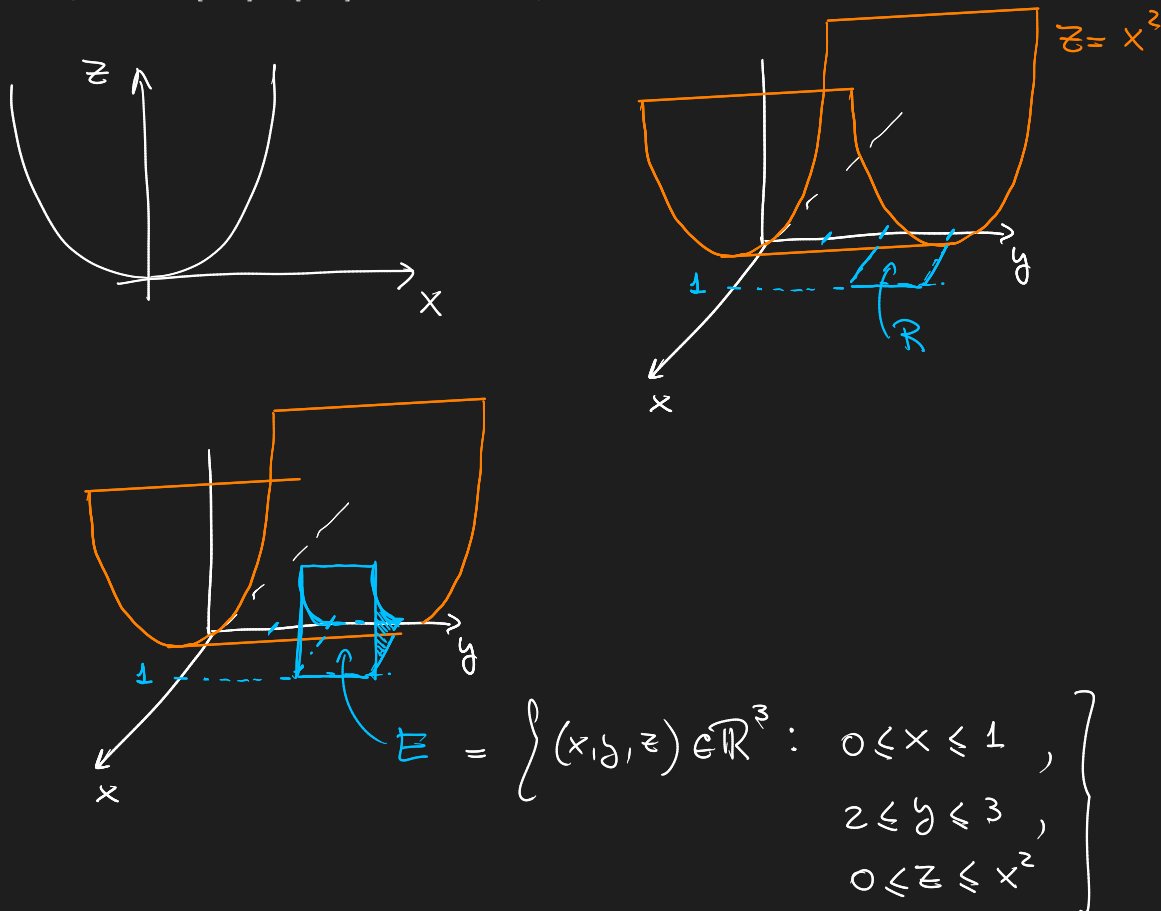 z
x
z = x²
y
1
R
x
1
y
x
E = { (x,y,z) ∈ ℝ³ : 0 ≤ x ≤ 1 ,
2 ≤ y ≤ 3 ,
0 ≤ z ≤ x² }